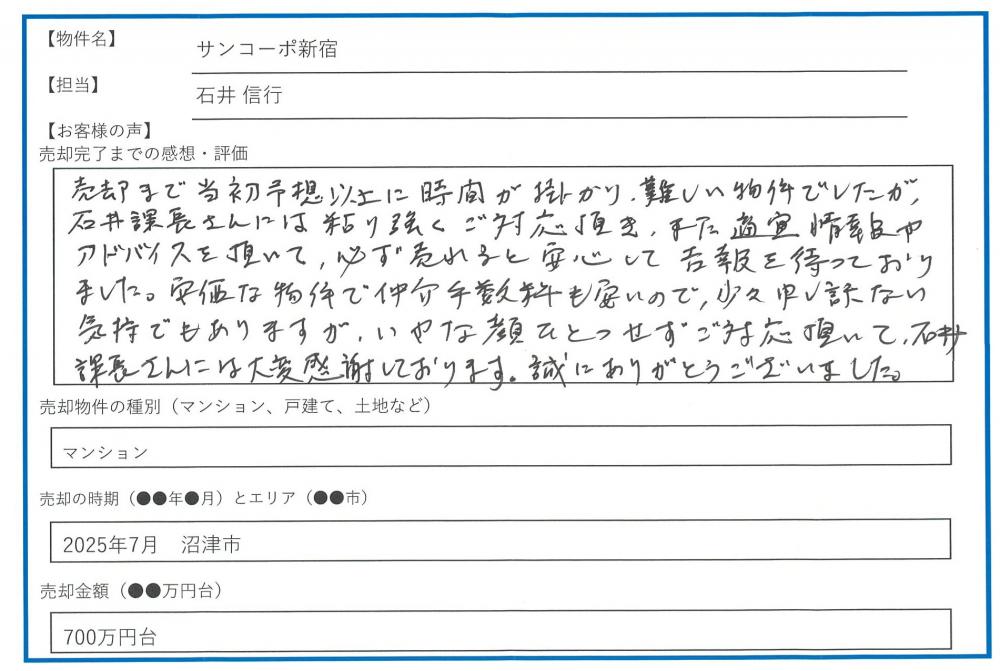 【物件名】
サンコーポ新宿
【担当】
石井 信行
【お客様の声】
売却完了までの感想・評価
売却まで当初予想以上に時間が掛かり、難しい物件でしたが、
石井課長さんには粘り強くご対応頂き、また適宜情報や
アドバイスを頂いて、必ず売れると安心して吉報を待っており
ました。安価な物件で仲介手数料も安いので、少々申し訳ない
気持でもありますが、いやな顔ひとつせずご対応頂いて、石井
課長さんには大変感謝しております。誠にありがとうございました。
売却物件の種別（マンション、戸建て、土地など）
マンション
売却の時期（●●年●月）とエリア（●●市）
2025年7月　沼津市
売却金額（●●万円台）
700万円台